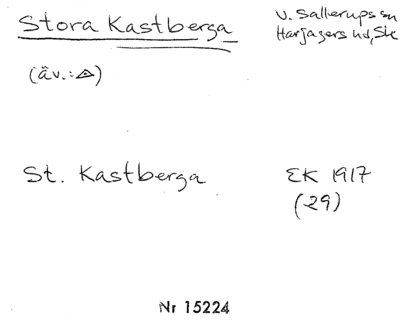 Stora Kastberga
V. Sallerups sn
Harjagers hd, Sk
(äv.: )
St. Kastberga
EK 1917
(29)
Nr 15224